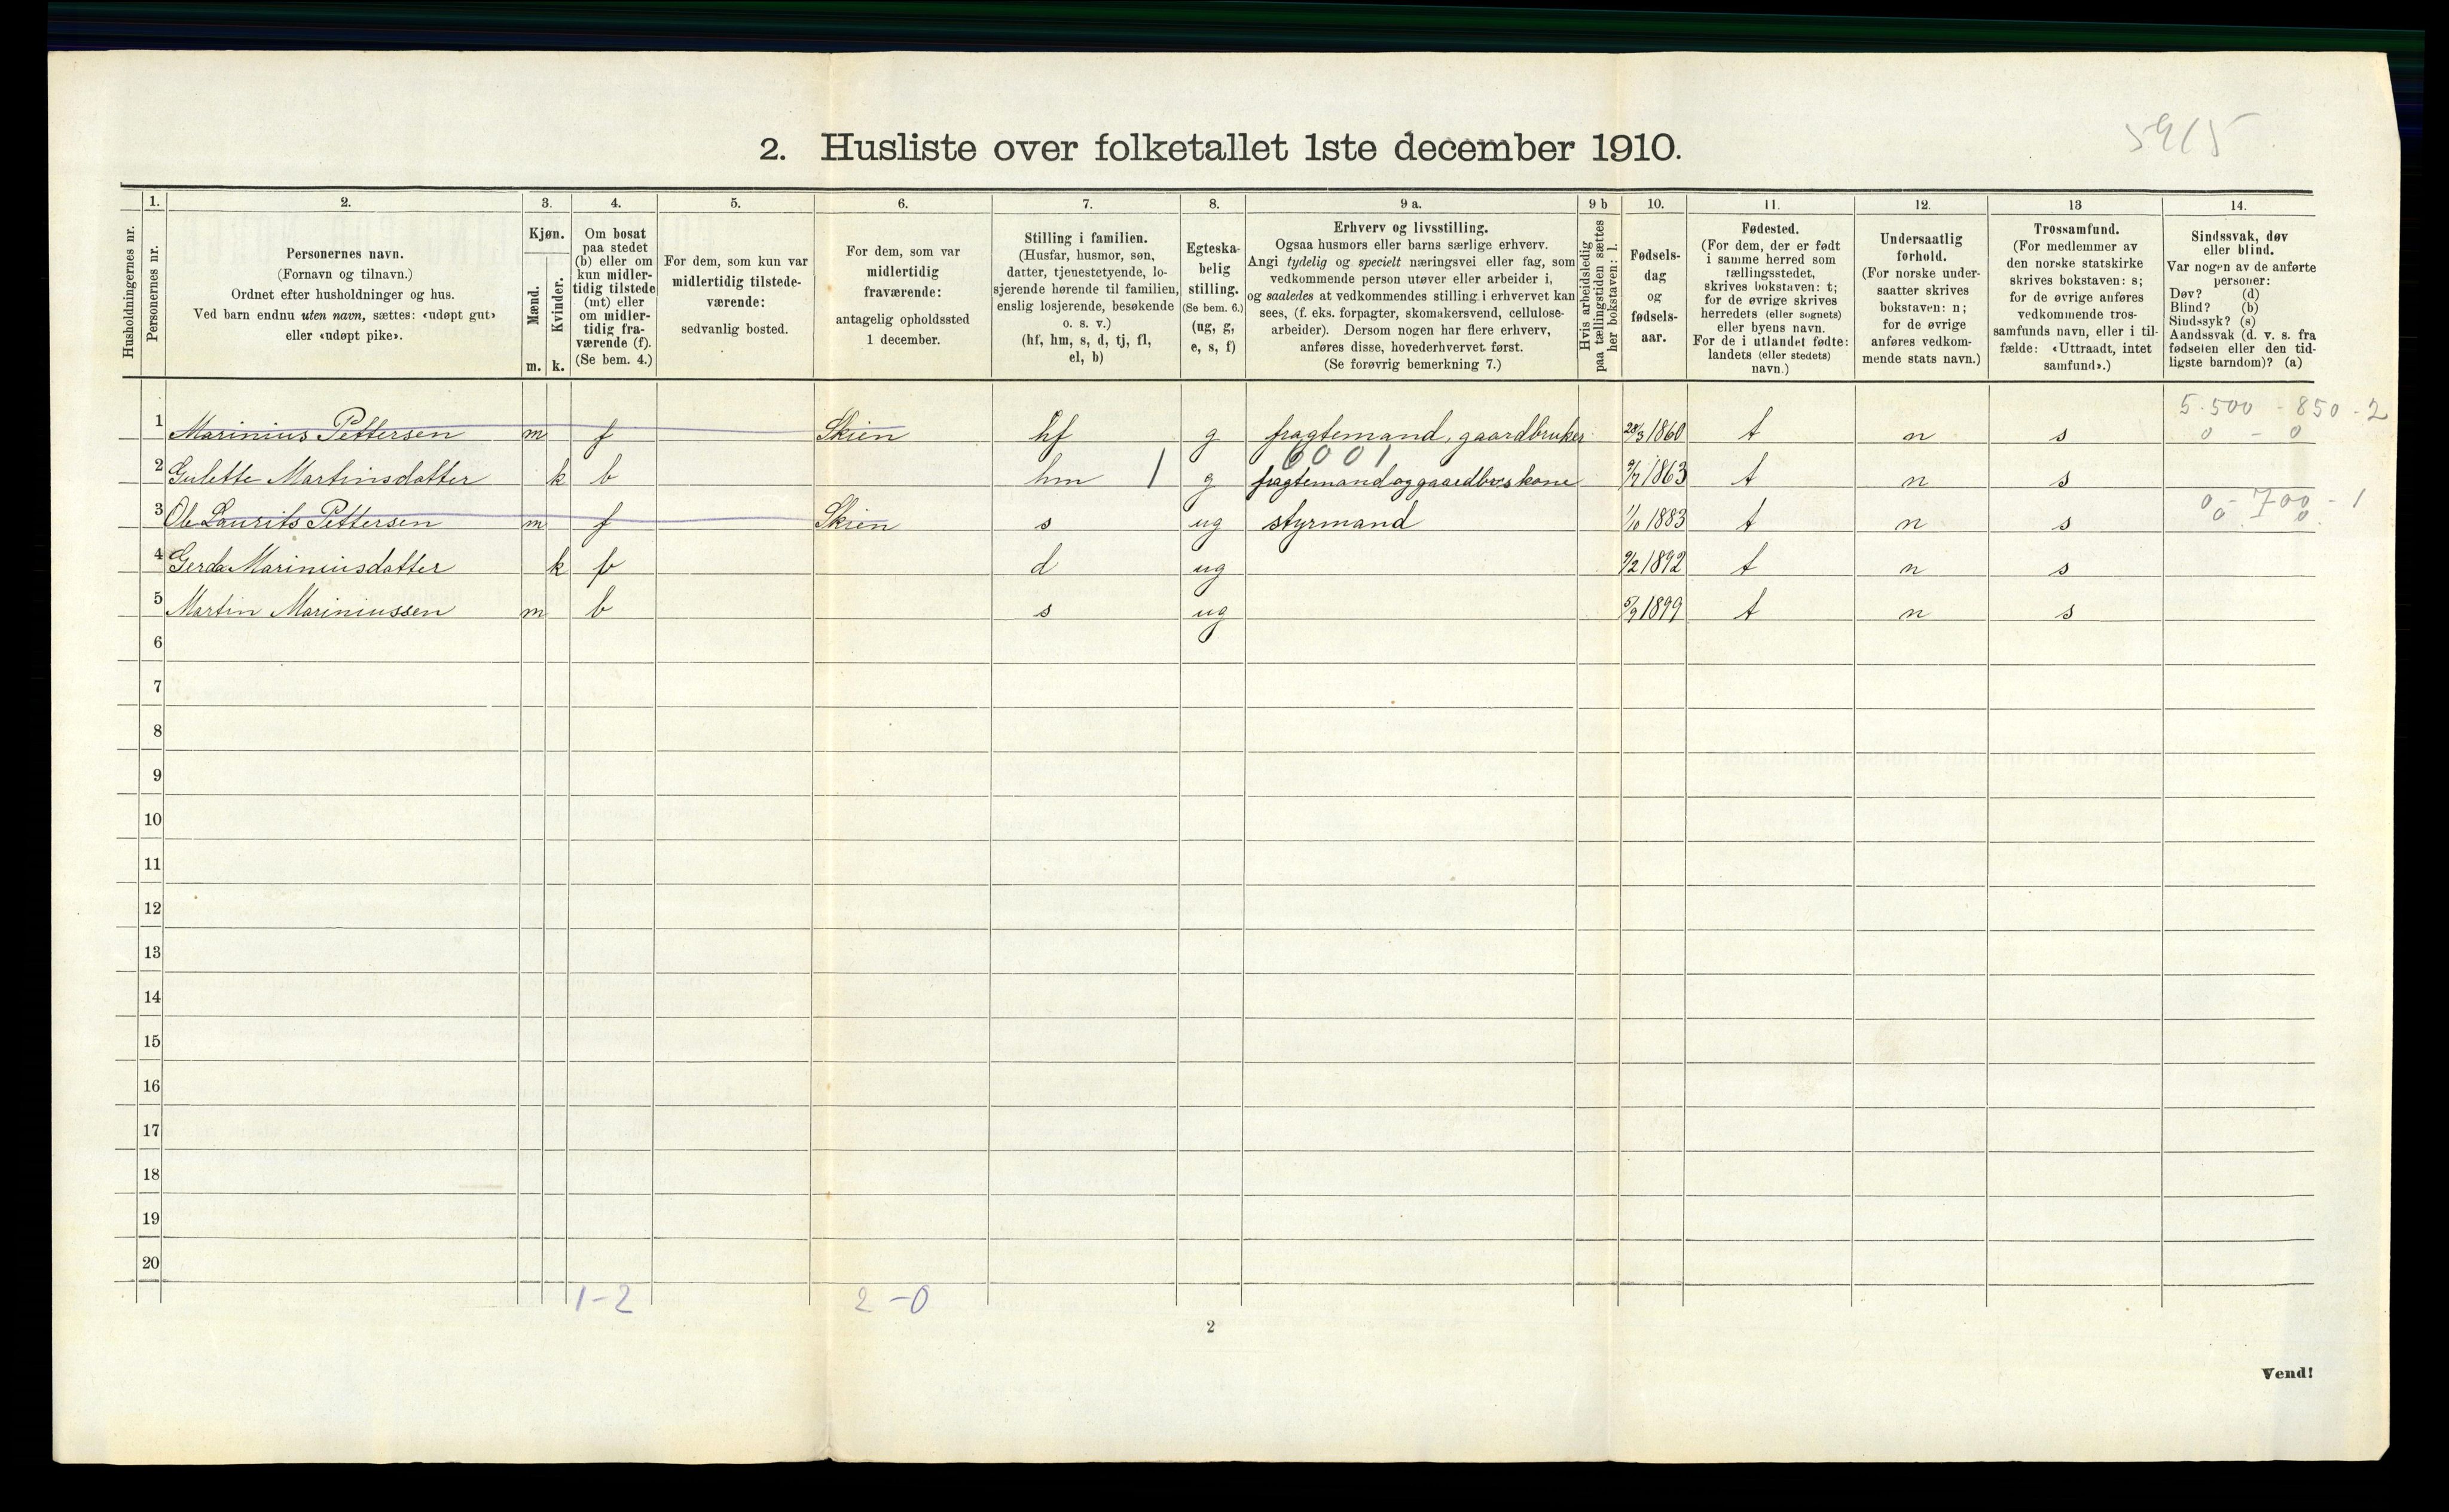 5915
2. Husliste over folketallet 1ste december 1910.
Husholdningernes nr.
1.
Personernes nr.
2.
Personernes navn.
(Fornavn og tilnavn.)
Ordnet efter husholdninger og hus.
Ved barn endnu uten navn, sættes: «udøpt gut»
eller «udøpt pike».
3.
Kjøn.
Mænd.
Kvinder.
m. k.
4.
Om bosat
paa stedet
(b) eller om
kun midler-
tidig tilstede
(mt) eller
om midler-
tidig fra-
værende (f).
(Se bem. 4.)
5.
For dem, som kun var
midlertidig tilstede-
værende:
sedvanlig bosted.
6.
For dem, som var
midlertidig
fraværende:
antagelig opholdssted
1 december.
7.
Stilling i familien.
(Husfar, husmor, søn,
datter, tjenestetyende, lo-
sjerende hørende til familien,
enslig losjerende, besøkende
o. s. v.)
(hf, hm, s, d, tj, fl,
el, b)
8.
Egteska-
belig
stilling.
(Se bem. 6.)
(ug, g,
e, s, f)
9 a.
Erhverv og livsstilling.
Ogsaa husmors eller barns særlige erhverv.
Angi tydelig og specielt næringsvei eller fag, som
vedkommende person utøver eller arbeider i,
og saaledes at vedkommendes stilling i erhvervet kan
sees, (f. eks. forpagter, skomakersvend, cellulose-
arbeider). Dersom nogen har flere erhverv,
anføres disse, hovederhvervet først.
(Se forøvrig bemerkning 7.)
9 b
Hvis arbeidsledig
paa tællingstiden sættes
her bokstaven: l.
10.
Fødsels-
dag
og
fødsels-
aar.
11.
Fødested.
(For dem, der er født
i samme herred som
tællingsstedet,
skrives bokstaven: t;
for de øvrige skrives
herredets (eller sognets)
eller byens navn.
For de i utlandet fødte:
landets (eller stedets)
navn.)
12.
Undersaatlig
forhold.
(For norske under-
saatter skrives
bokstaven: n;
for de øvrige
anføres vedkom-
mende stats navn.)
13
Trossamfund.
(For medlemmer av
den norske statskirke
skrives bokstaven: s;
for de øvrige anføres
vedkommende tros-
samfunds navn, eller i til-
fælde: «Uttraadt, intet
samfund».)
14.
Sindssvak, døv
eller blind.
Var nogen av de anførte
personer:
Døv? (d)
Blind? (b)
Sindssyk? (s)
Aandssvak (d. v. s. fra
fødselen eller den tid-
ligste barndom)? (a)
5.500 - 850 - 2
1 Marinius Pettersen m f Skien hf g fragtemand, gaardbruker 28/3 1860 t n s 0 - 0
6001
2 Gulette Martinsdatter k b hm 1 g fragtemand og gaardbr.s kone 9/7 1863 t n s
0 - 700 - 1
3 Ole Laurits Pettersen m f Skien s ug styrmand 1/10 1883 t n s 0 0
4 Gerda Mariniusdatter k b d ug 9/2 1892 t n s
5 Martin Mariniussen m b s ug 5/9 1899 t n s
6
7
8
9
10
11
12
13
14
15
16
17
18
19
20
1-2 2-0
2
Vend!